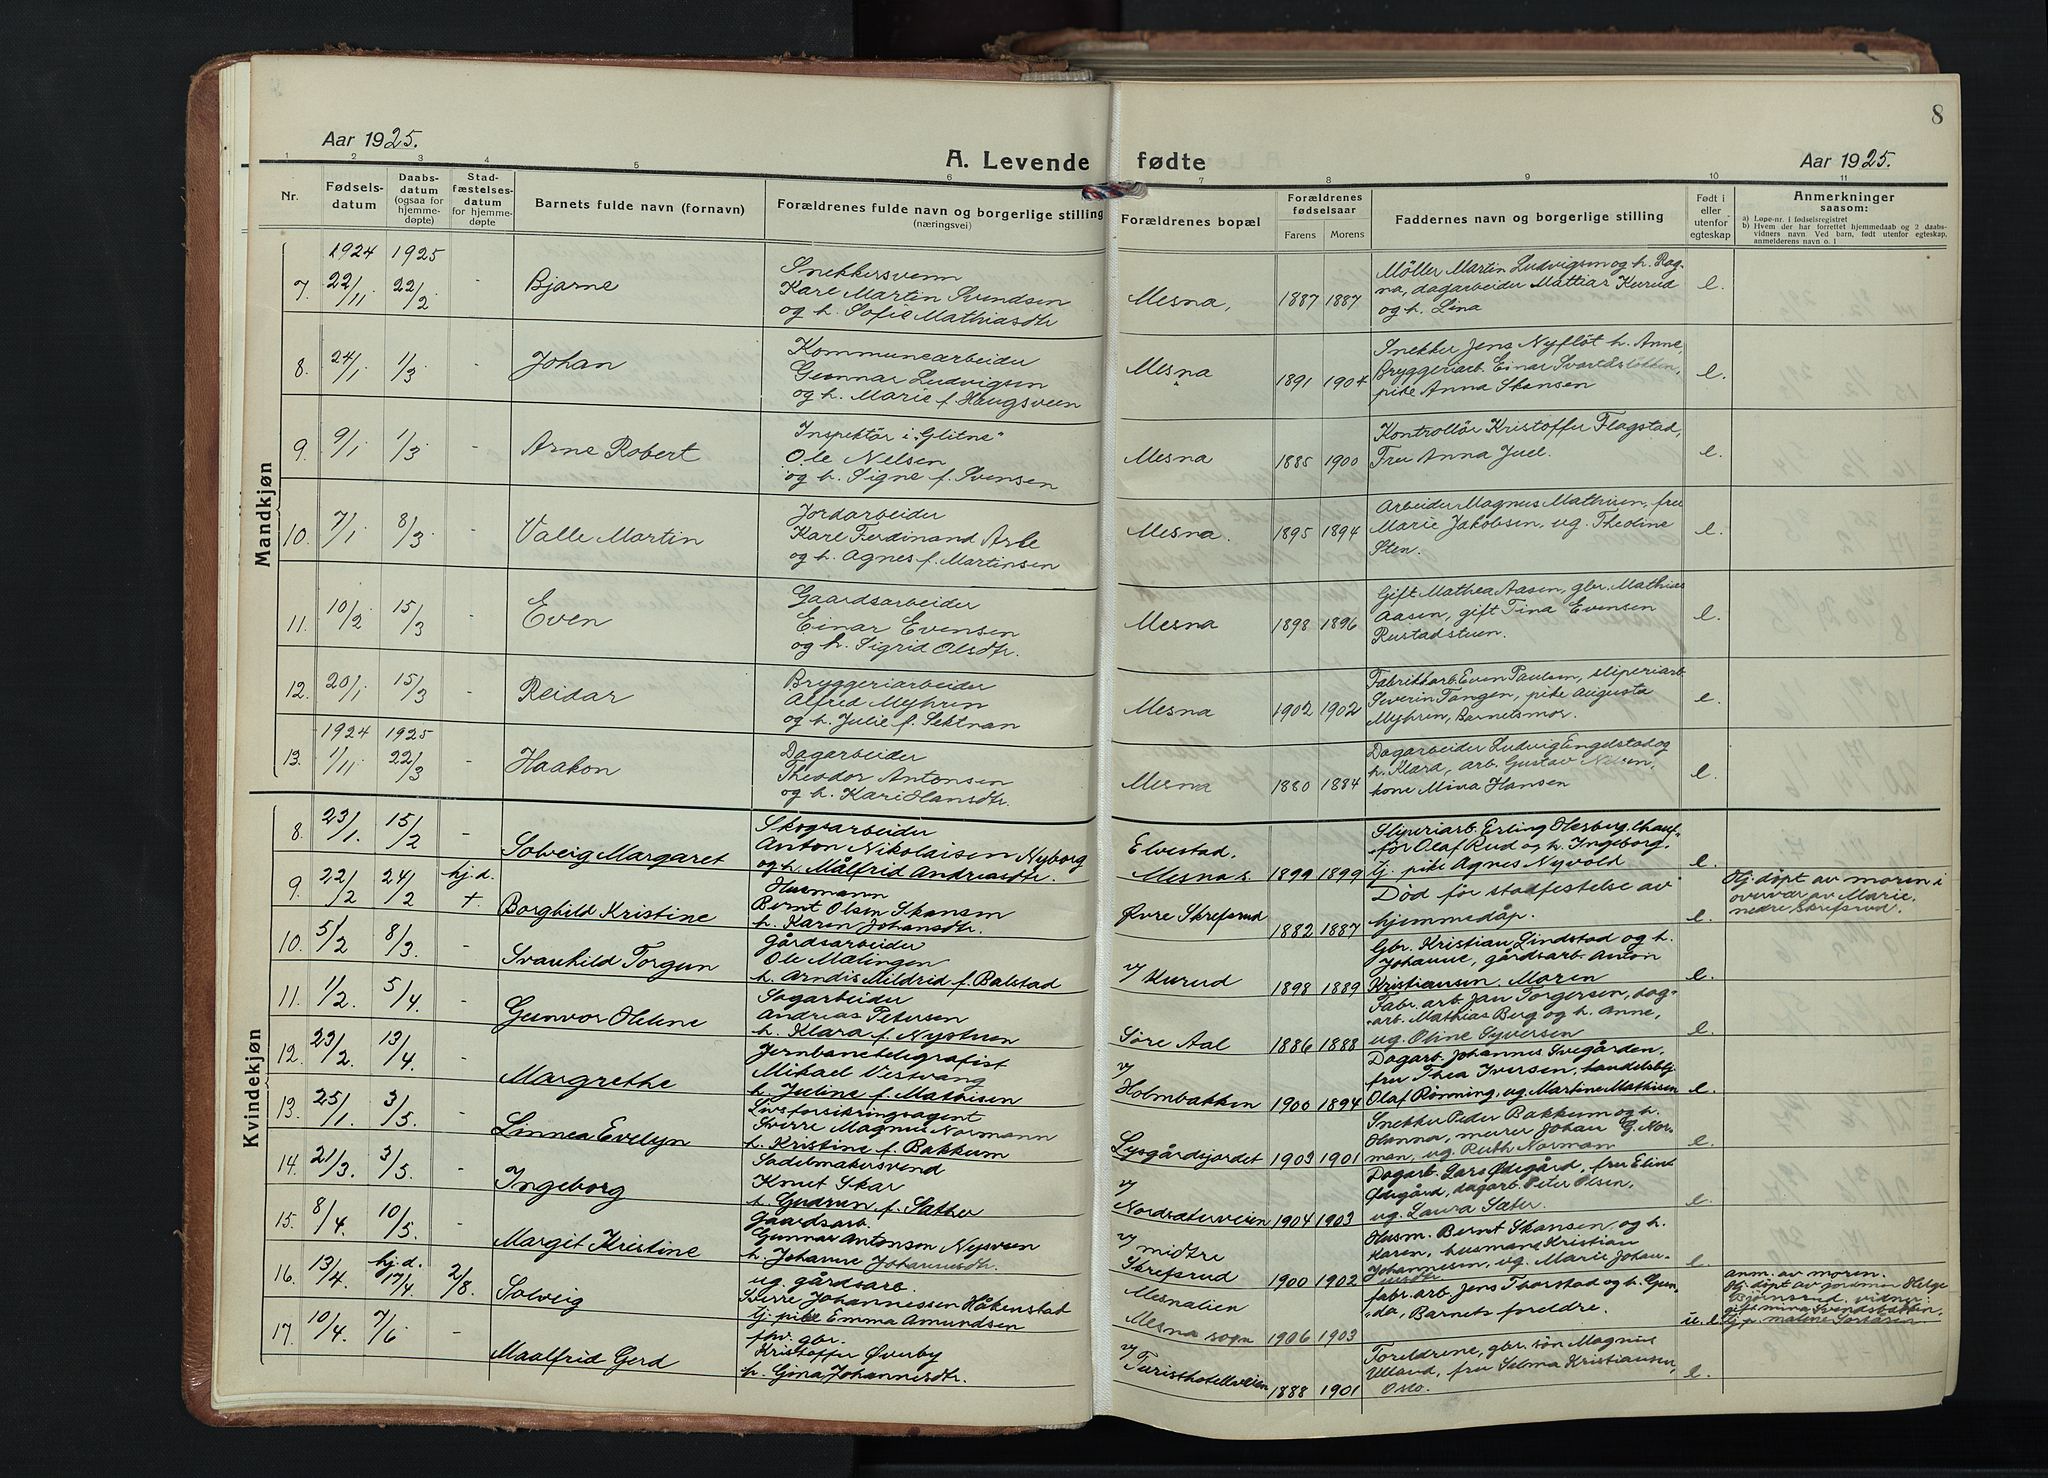 8
Aar 1925.
A. Levende fødte
Aar 1925.
1 2 3 4 5 6 7 8 9 10 11
Nr.
Fødsels-
datum
Daabs-
datum
(ogsaa for
hjemme-
døpte)
Stad-
fæstelses-
datum
for hjemme-
døpte
Barnets fulde navn (fornavn)
Forældrenes fulde navn og borgerlige stilling
(næringsvei)
Forældrenes bopæl
Forældrenes
fødselsaar
Farens Morens
Faddernes navn og borgerlige stilling
Født i
eller
utenfor
egteskap
Anmerkninger
saasom:
a) Løpe-nr. i fødselsregistret
b) Hvem der har forrettet hjemmedaab og 2 daabs-
vidners navn. Ved barn, født utenfor egteskap,
anmelderens navn o. l
Mandkjøn
1924 1925
7. 22/11 22/2 - Bjarne
Snekkersvenn
Karl Martin Svendsen
og h. Sofie Mathiasdtr
Mesna, 1887 1887
Møller Martin Ludvigsen og h. Rag-
na, dagarbeider Mathias Kurud
og h. Lina
e.
8. 24/1 1/3 - Johan
Kommunearbeider
Gunnar Ludvigsen
og h. Marie f. Haugsveen
Mesna 1891 1904
Snekker Jens Nyfløt h. Anne,
Bryggeriarb. Einar Svartdsløkken,
pike Anna Skansen
e.
9. 9/1 1/3 - Arne Robert
Inspektør i "Glitne"
Ole Nelsen
og h. Signe f. Svensen
Mesna 1885 1900
Kontrollør Kristoffer Flagstad,
Fru Anna Juel.
e.
10. 7/1 8/3 - Valle Martin
Jordarbeider
Karl Ferdinand Arle
og h. Agnes f. Martinsen
Mesna. 1895 1894
Arbeider Magnus Mathisen, fru
Marie Jakobsen, ug. Theoline
Sten.
e.
11. 10/2 15/3 - Even
Gaardsarbeider
Einar Evensen
og h. Sigrid Olsdtr.
Mesna 1898 1896
Gift Mathea Aasen, gbr. Mathias
Aasen, gift Tina Evensen
Rustadstuen.
e.
12. 20/1 15/3 - Reidar
Bryggeriarbeider
Alfred Myhren
og h. Julie f. Sektnan
Mesna 1902 1902
Fabrikkarb. Even Paulsen, sliperiarb.
Severin Tangen, pike Augusta
Myhren, Barnetsmor.
e.
1924 1925
13. 1/11 22/3 - Haakon
Dagarbeider
Theodor Antonsen
og h. Kari Hansdtr.
Mesna 1880 1884
Dagarbeider Ludvig Engelstad og
h. Klara, arb. Gustav Nilsen,
kone Mina Hansen
e.
Kvindekjøn
8. 23/1. 15/2 - Solveig Margaret
Skogsarbeider
Anton Nikolaisen Nyborg
og h. Målfrid Andreasdtr.
Elvestad,
Mesna s. 1899 1899
Sliperiarb. Erling Olesberg, chauf-
før Olaf Rud og h. Ingeborg,
tj. pike Agnes Nyvold
e.
9. 22/2 24/2 hj. d. +. Borghild Kristine
Husmann
Bernt Olsen Skansen
h. Karen Johansdtr.
Øvre Skrefsrud 1882 1887
Død før stadfestelse av
hjemmedåp.
e.
Hj. døpt av moren i
overvær av Marie,
nedre Skrefsrud.
10. 5/2 8/3. - Svanhild Torgun
Gårdsarbeider
Ole Mælingen
h. Arndis Mildrid f. Balstad
v/ Kurud 1898 1889
Gbr. Kristian Lindstad og h.
Johanne, gårdsarb. Anton
Kristiansen, Moren
e.
11. 1/2. 5/4 - Gunvor Helene
Sagarbeider
Andreas Petersen
h. Klara f. Nystuen
Søre Aal 1886 1888
Fabr. arb. Jan Torgersen, dag-
arb. Mathias Berg og h. Anne,
ug. Oline Syversen
e.
12. 23/2. 13/4. - Margrethe
Jernbanetelegrafist
Mikael Vestvang
h. Juline f. Mathisen
v/ Holmbakken 1900 1894
Dagarb. Johannes Svegården,
fru Thea Iversen, handelsbtj.
Olaf Rønning, ug. Martine Mathisen
e.
13. 25/1. 3/5. - Linnea Evelyn
Livsforsikringsagent
Sverre Magnus Normann
h. Kristine f. Bakkum
Lysgårdsjordet 1903 1901
Snekker Peder Bakkum og h.
Hanna, murer Johan G. Nor-
man, ug. Ruth Norman
e.
14. 21/3. 3/5. - Ingeborg
Sadelmakersvend
Knut Skar
h. Gudrun f. Sæther
v/ Nordsæterveien 1904 1903
Dagarb. Lars Ødegård, fru Eline
Ødegård, dagarb. Peter Olsen,
ug. Laura Sæter.
e.
15. 8/4. 10/5. - Margit Kristine
Gaardsarb.
Gunnar Antonson Nysveen
h. Johanne Johannesdtr.
v/ midtre
Skrefsrud 1900 1902
Husm. Bernt Skansen og h.
Karen, husmand Kristian
Johannesen, ug. Marie Johan-
nesdtr
e.
16. 13/4. hj. d. 17/4 2/8 Solveig
ug. gårdsarb.
Sverre Johannessen Håkenstad
tj. pike Emma Amundsen
Mesnalien
Mesna sogn 1906 1903
fabr. arb. Jens Thorstad og h. Gun-
da, Barnets foreldre.
u. e.
anm. av moren.
Hj. døpt av jordmor Helge
Bjørnsrud, vidner:
gift mina Svendsbakken,
tj. p. maline
17. 10/4. 7/6 - Maalfrid Gerd
fhv. gbr.
Kristoffer Øverby
h. Gina Johannesdtr.
v/ Turisthotellveien 1888 1901
Foreldrene, gbr. søn Magnus
Ulland, fru Selma Kristiansen,
Oslo.
e.